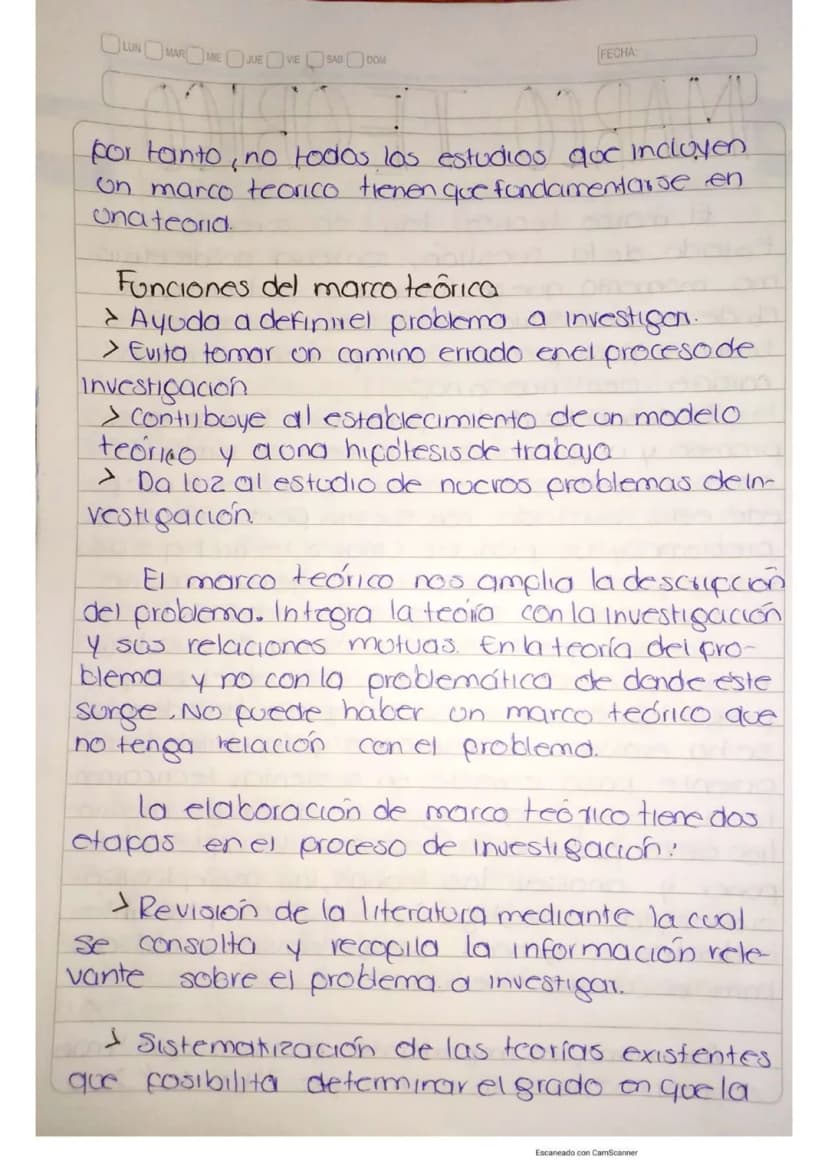 LUN MAR MIE JUE VIE SAB DOM FECHA:
por tanto, no todos los estudios que incluyen
un marco teorico tienen que fundamentarse en
una teoria.
Funciones del marco teórico
> Ayuda a definir el problema a investigar.
> Evita tomar un camino errado en el proceso de
investigación
> Contribuye al establecimiento de un modelo
teórico y a una hipótesis de trabajo
> Da luz al estudio de nuevos problemas de in-
vestigación.
El marco teórico nos amplia la descripción
del problema. Integra la teoría con la investigación
y sus relaciones mutuas. En la teoría del pro-
blema y no con la problemática de donde este
surge. No puede haber un marco teórico que
no tenga relación con el problema.
la elaboración de marco teórico tiene dos
etapas en el proceso de investigación:
> Revisión de la literatura mediante la cual
se consulta y recopila la información rele-
vante sobre el problema a investigar.
> Sistematización de las teorías existentes
que posibilita determinar el grado en que la
Escaneado con CamScanner